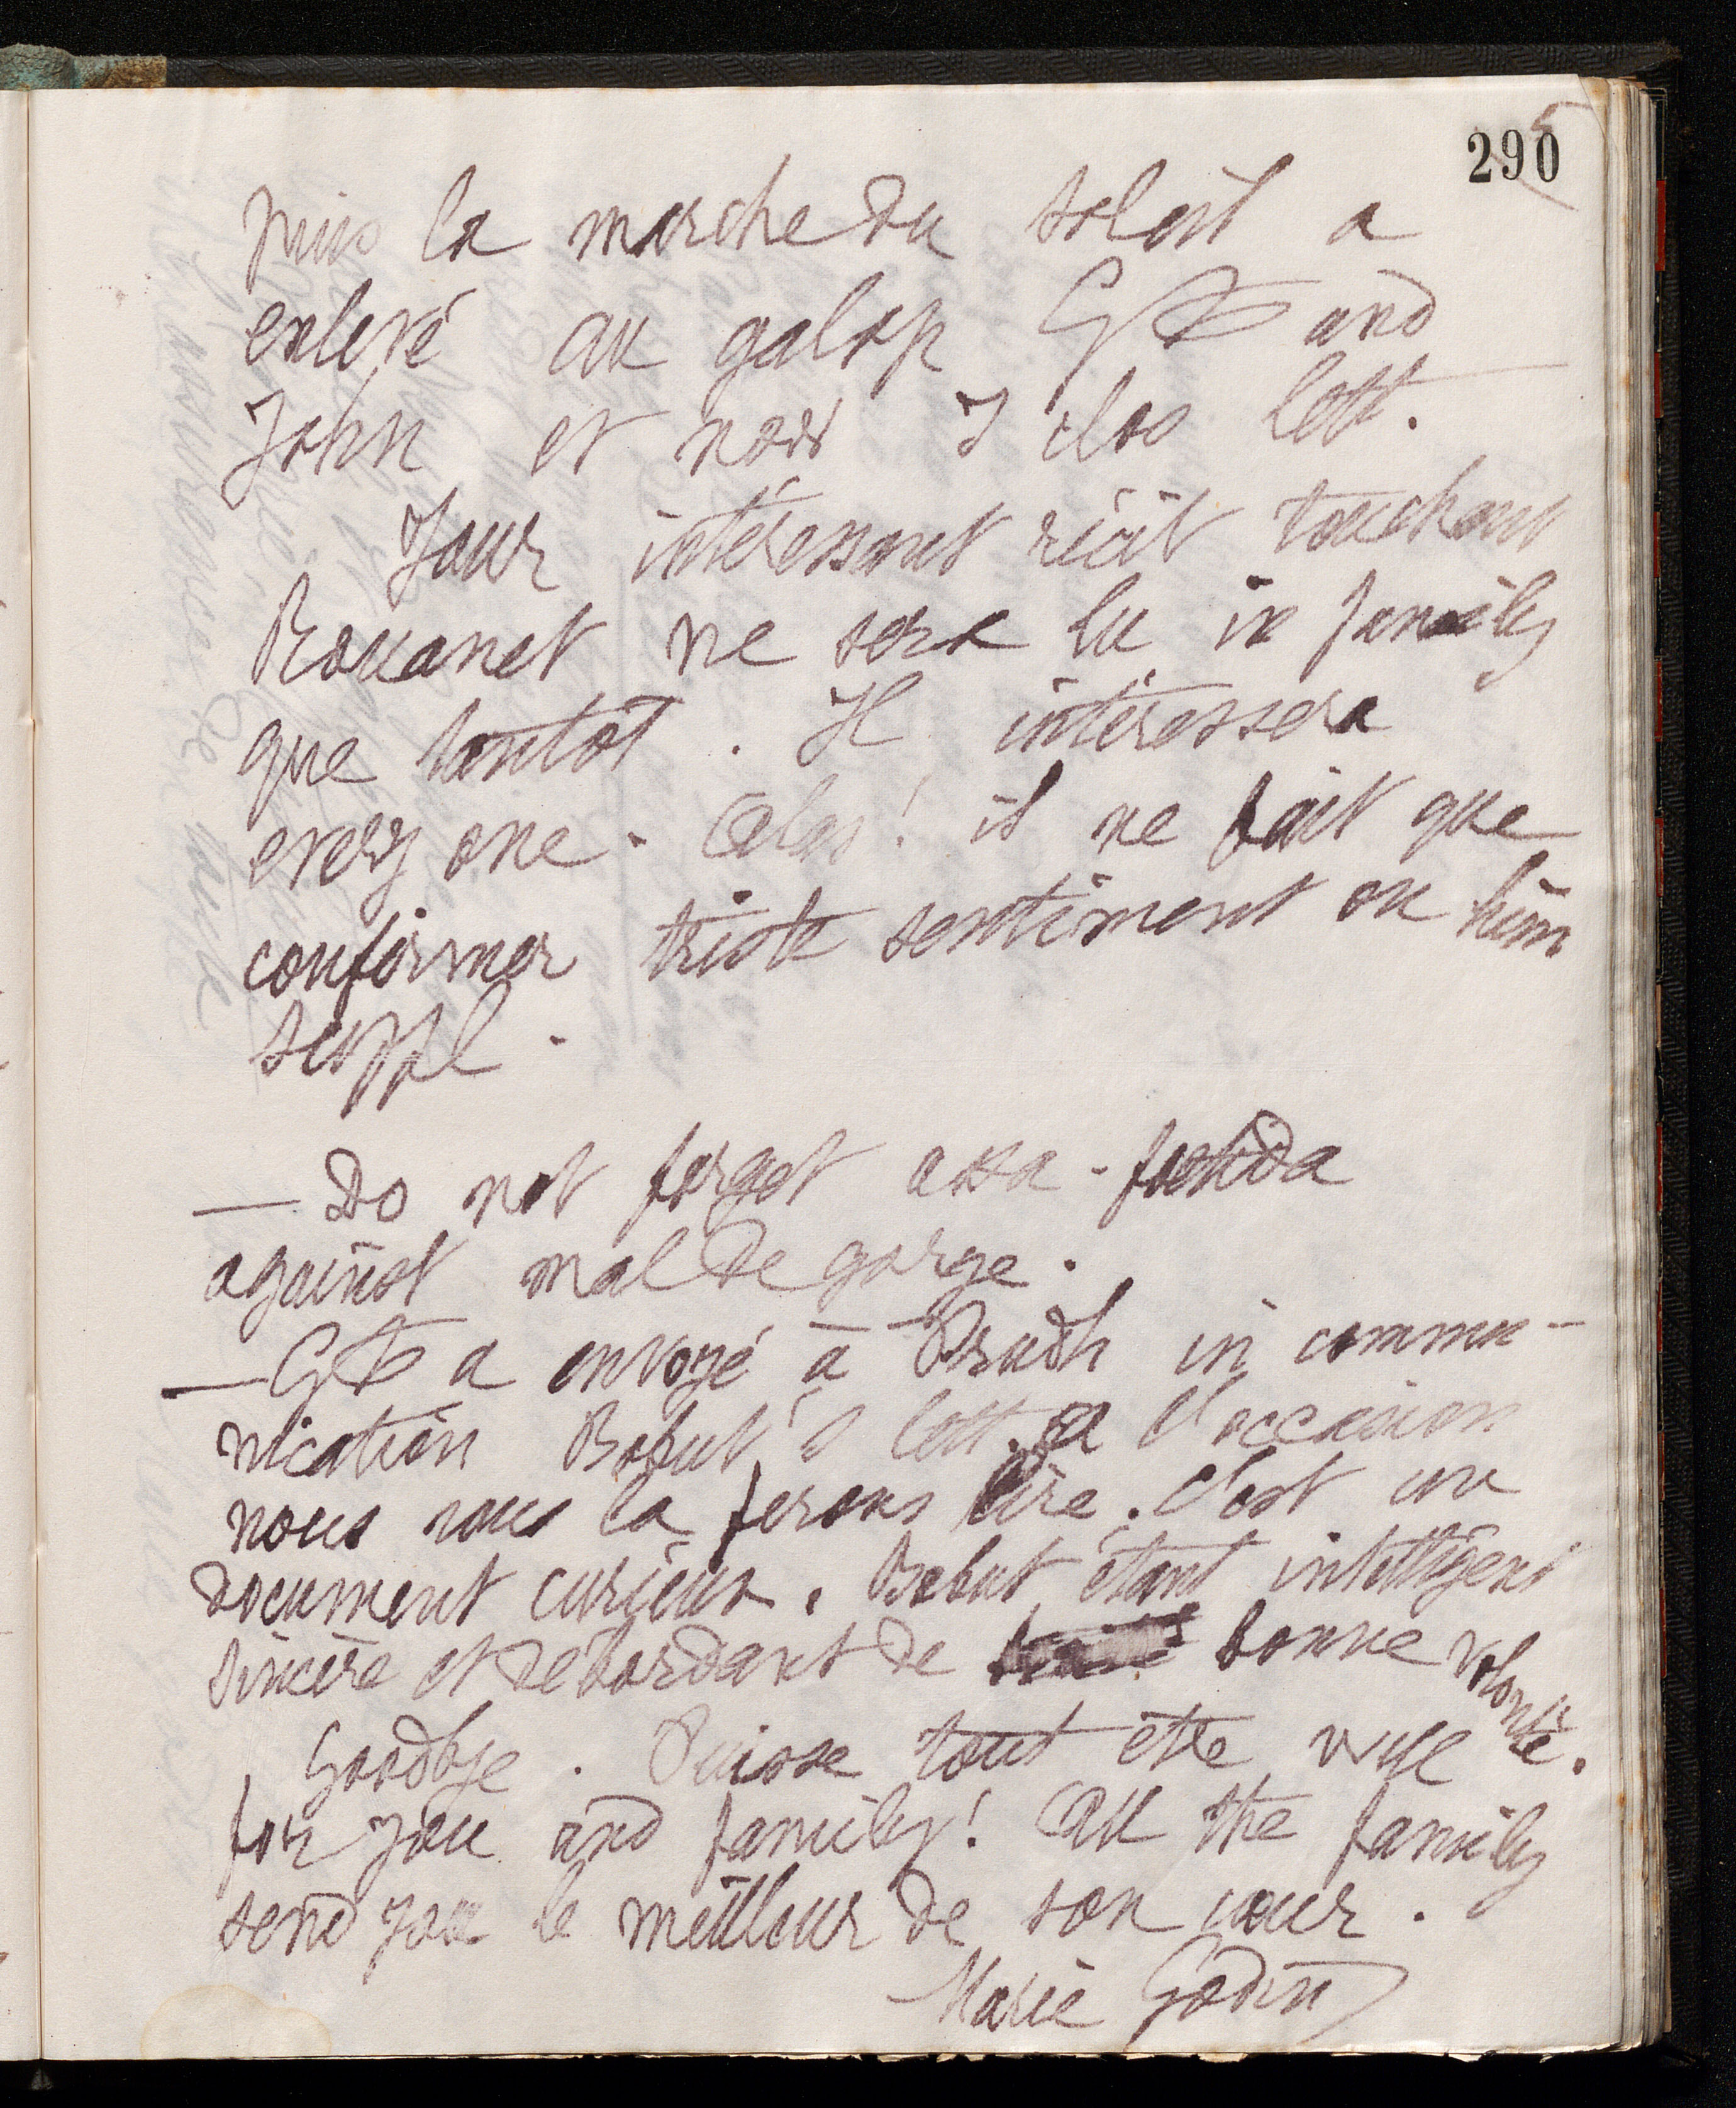 290
5
puis la marche du soleil a
enlevé au galop Gθ and
John et now I clos lett.
Your intéressant récit touchant
Rouanet ne sera lu in family
que tantôt. Il intéressera
every one. Alas! il ne fait que
confirmer triste sentiment on him
suppl.
— Do not forget assa-foetida
against mal de gorge.
— a envoyé à Prudh in commu-
nication Bobut's lett. à l'occasion
nous vous la ferons lire. C'est un
document curieux. Bobut étant intelligent
sincère et débordant de bonne volonté.
Goodbye. Puisse tout être well
for you and family! All the family
send you le meilleur de son cœur.
Marie Godin